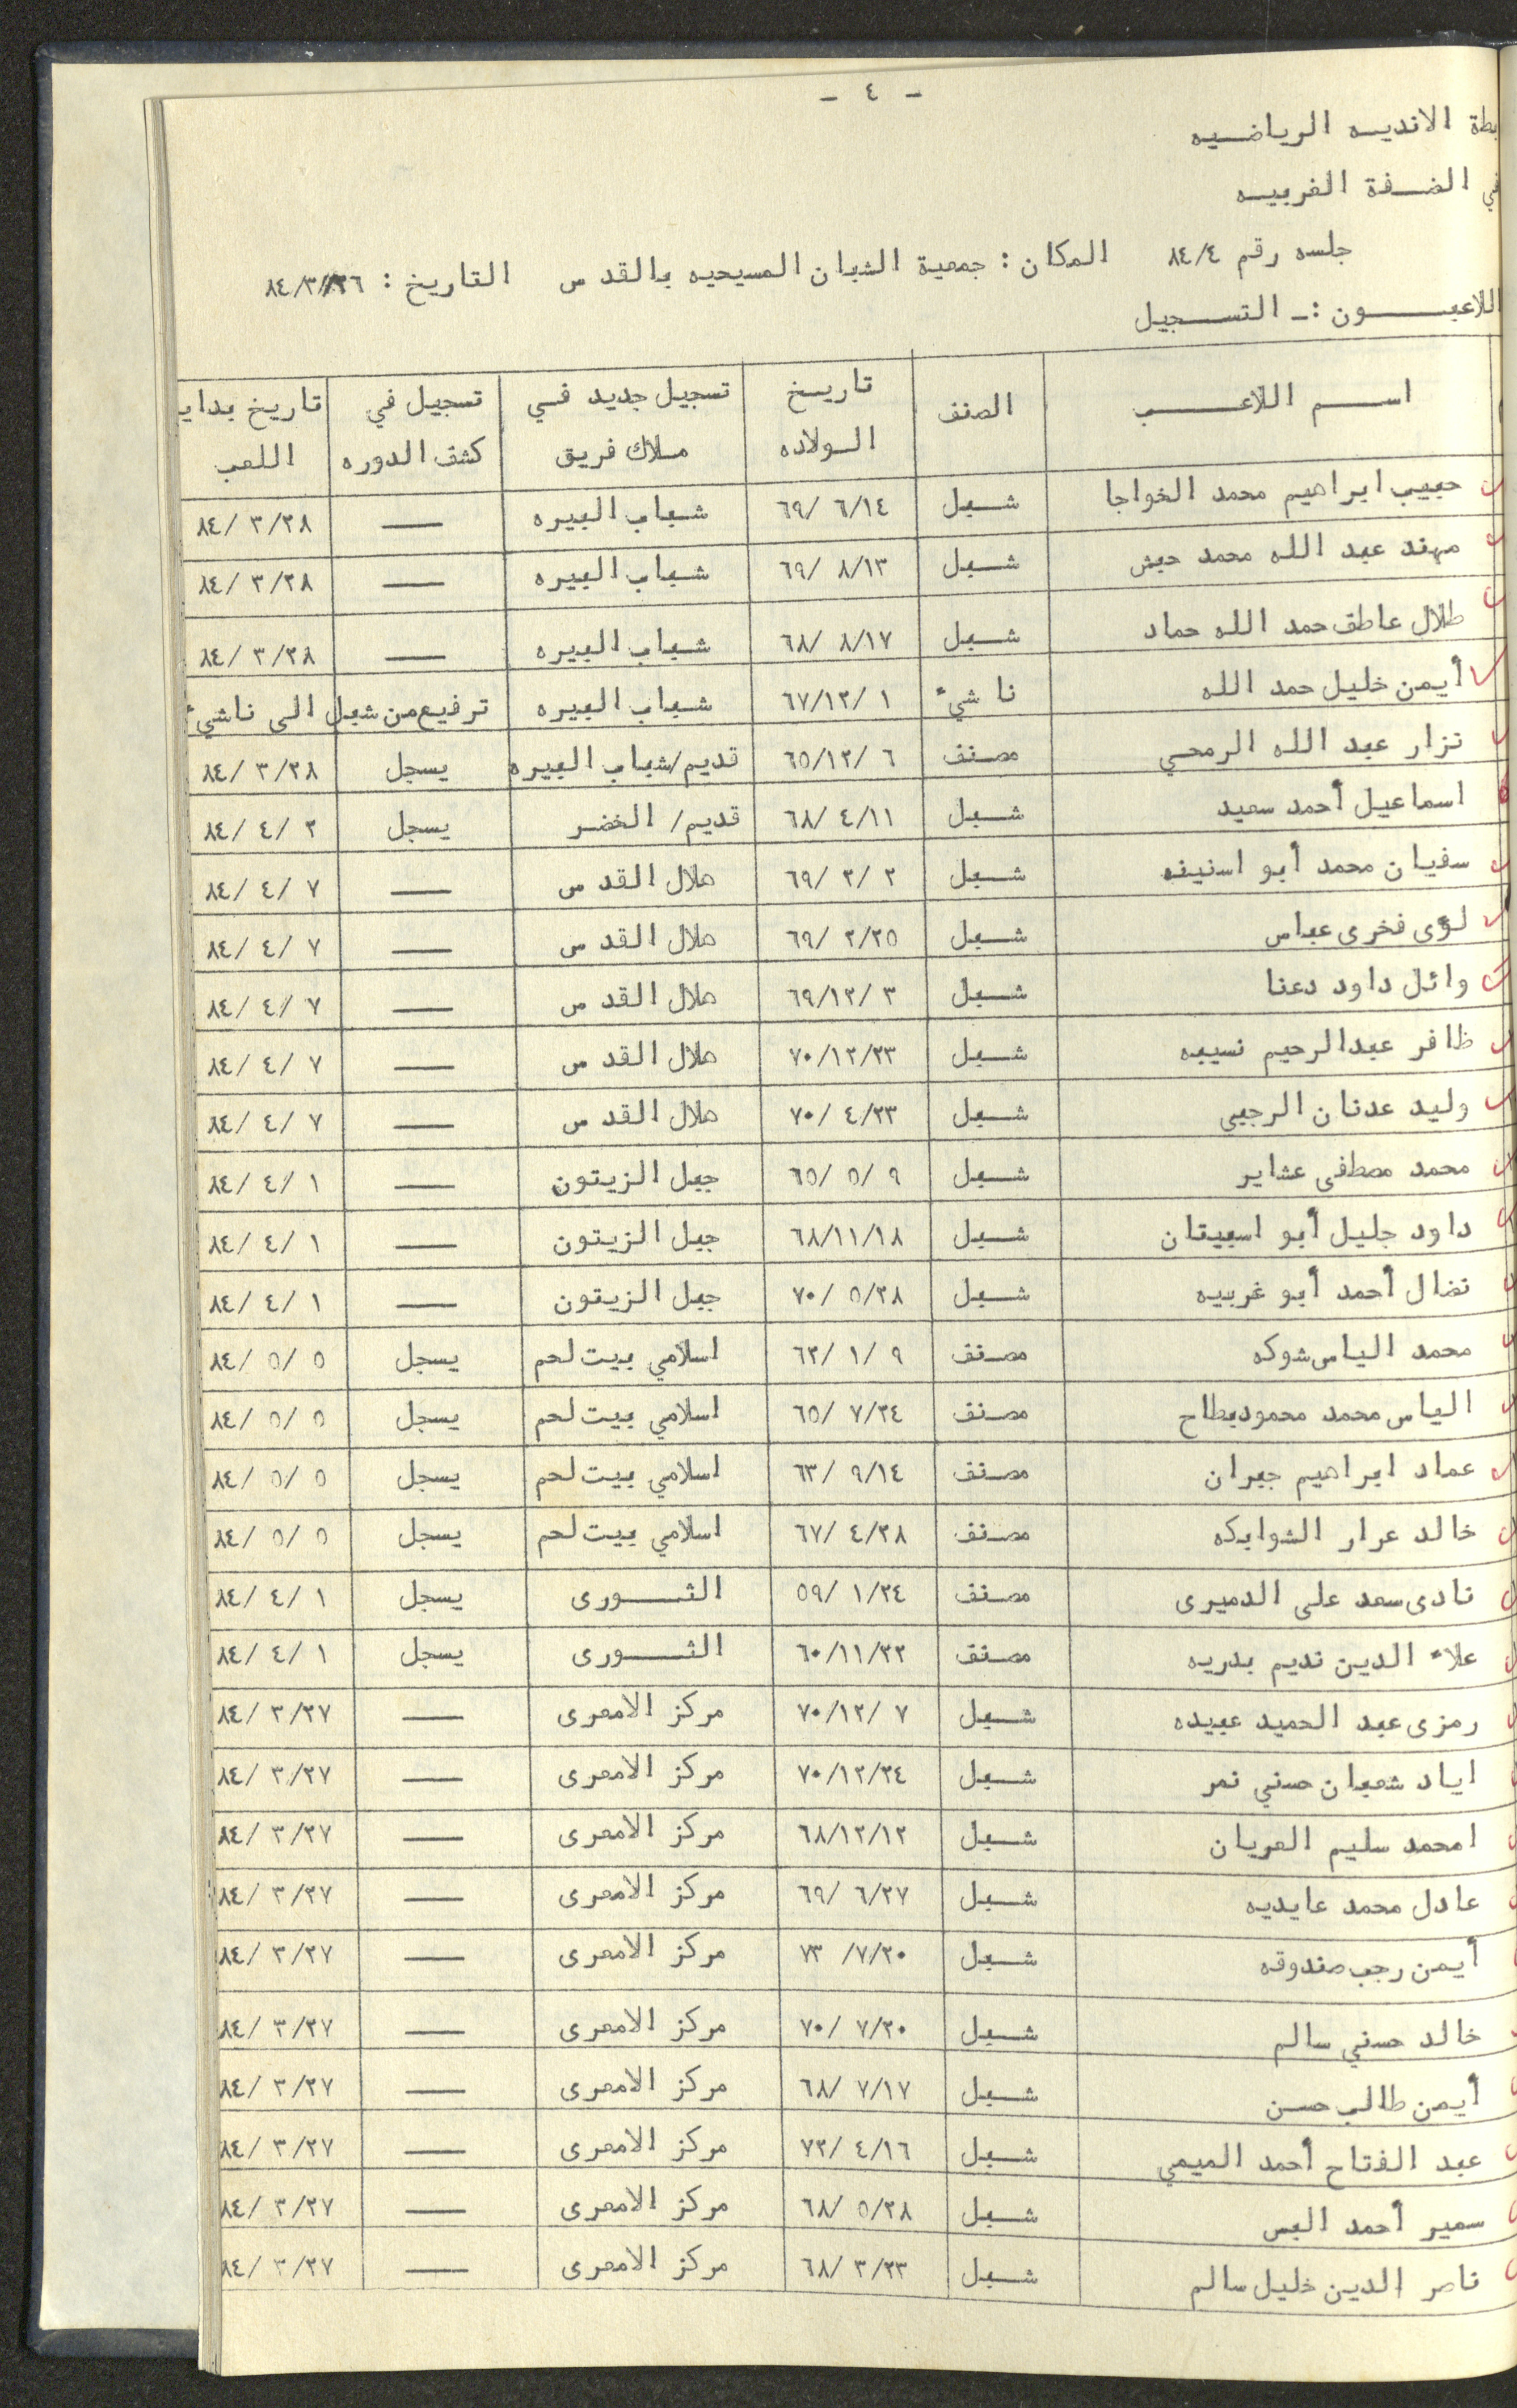 - ٤ -
بطة الانديه الرياضيه
في الضفة الغربيه
جلسه رقم ٨٤/٤ المكان : جمعية الشبان المسيحيه بالقدس التاريخ : ٨٤/٣/٢٦
اللاعبون :- التسجيل
اسم اللاعب | الصنف | تاريخ الولاده | تسجيل جديد في ملاك فريق | تسجيل في كشف الدوره | تاريخ بداي اللعب
حبيب ابراهيم محمد الخواجا | شبل | ٦٩/ ٦/١٤ | شباب البيره | — | ٨٤/ ٣/٢٨
مهند عبد الله محمد حبش | شبل | ٦٩/ ٨/١٣ | شباب البيره | — | ٨٤/ ٣/٢٨
طلال عاطف حمد الله حماد | شبل | ٦٨/ ٨/١٧ | شباب البيره | — | ٨٤/ ٣/٢٨
أيمن خليل حمد الله | ناشيء | ٦٧/١٢/ ١ | شباب البيره | ترفيع من شبل الى ناشيء
نزار عبد الله الرمحي | مصنف | ٦٥/١٢/ ٦ | قديم/شباب البيره | يسجل | ٨٤/ ٣/٢٨
اسماعيل أحمد سعيد | شبل | ٦٨/ ٤/١١ | قديم/ الخضر | يسجل | ٨٤/ ٤/ ٢
سفيان محمد أبو اسنينه | شبل | ٦٩/ ٢/ ٢ | هلال القدس | — | ٨٤/ ٤/ ٧
لؤى فخرى عباس | شبل | ٦٩/ ٢/٢٥ | هلال القدس | — | ٨٤/ ٤/ ٧
وائل داود دعنا | شبل | ٦٩/١٢/ ٣ | هلال القدس | — | ٨٤/ ٤/ ٧
ظافر عبدالرحيم نسيبه | شبل | ٧٠/١٢/٢٣ | هلال القدس | — | ٨٤/ ٤/ ٧
وليد عدنان الرجبي | شبل | ٧٠/ ٤/٢٣ | هلال القدس | — | ٨٤/ ٤/ ٧
محمد مصطفى عشاير | شبل | ٦٥/ ٥/ ٩ | جبل الزيتون | — | ٨٤/ ٤/ ١
داود جليل أبو اسبيتان | شبل | ٦٨/١١/١٨ | جبل الزيتون | — | ٨٤/ ٤/ ١
نضال أحمد أبو غربيه | شبل | ٧٠/ ٥/٢٨ | جبل الزيتون | — | ٨٤/ ٤/ ١
محمد الياس شوكه | مصنف | ٦٢/ ١/ ٩ | اسلامي بيت لحم | يسجل | ٨٤/ ٥/ ٥
الياس محمد محمود بطاح | مصنف | ٦٥/ ٧/٢٤ | اسلامي بيت لحم | يسجل | ٨٤/ ٥/ ٥
عماد ابراهيم جبران | مصنف | ٦٣/ ٩/١٤ | اسلامي بيت لحم | يسجل | ٨٤/ ٥/ ٥
خالد عرار الشوابكه | مصنف | ٦٧/ ٤/٢٨ | اسلامي بيت لحم | يسجل | ٨٤/ ٥/ ٥
نادى سعد على الدميرى | مصنف | ٥٩/ ١/٢٤ | الثورى | يسجل | ٨٤/ ٤/ ١
علاء الدين نديم بدريه | مصنف | ٦٠/١١/٢٢ | الثورى | يسجل | ٨٤/ ٤/ ١
رمزى عبد الحميد عبيده | شبل | ٧٠/١٢/ ٧ | مركز الامعرى | — | ٨٤/ ٣/٢٧
اياد شعبان حسني نمر | شبل | ٧٠/١٢/٢٤ | مركز الامعرى | — | ٨٤/ ٣/٢٧
امحمد سليم العريان | شبل | ٦٨/١٢/١٢ | مركز الامعرى | — | ٨٤/ ٣/٢٧
عادل محمد عايديه | شبل | ٦٩/ ٦/٢٧ | مركز الامعرى | — | ٨٤/ ٣/٢٧
أيمن رجب صندوقه | شبل | ٧٣ /٧/٢٠ | مركز الامعرى | — | ٨٤/ ٣/٢٧
خالد حسني سالم | شبل | ٧٠/ ٧/٢٠ | مركز الامعرى | — | ٨٤/ ٣/٢٧
أيمن طالب حسن | شبل | ٦٨/ ٧/١٧ | مركز الامعرى | — | ٨٤/ ٣/٢٧
عبد الفتاح أحمد الميمي | شبل | ٧٢/ ٤/١٦ | مركز الامعرى | — | ٨٤/ ٣/٢٧
سمير أحمد البس | شبل | ٦٨/ ٥/٢٨ | مركز الامعرى | — | ٨٤/ ٣/٢٧
ناصر الدين خليل سالم | شبل | ٦٨/ ٣/٢٣ | مركز الامعرى | — | ٨٤/ ٣/٢٧